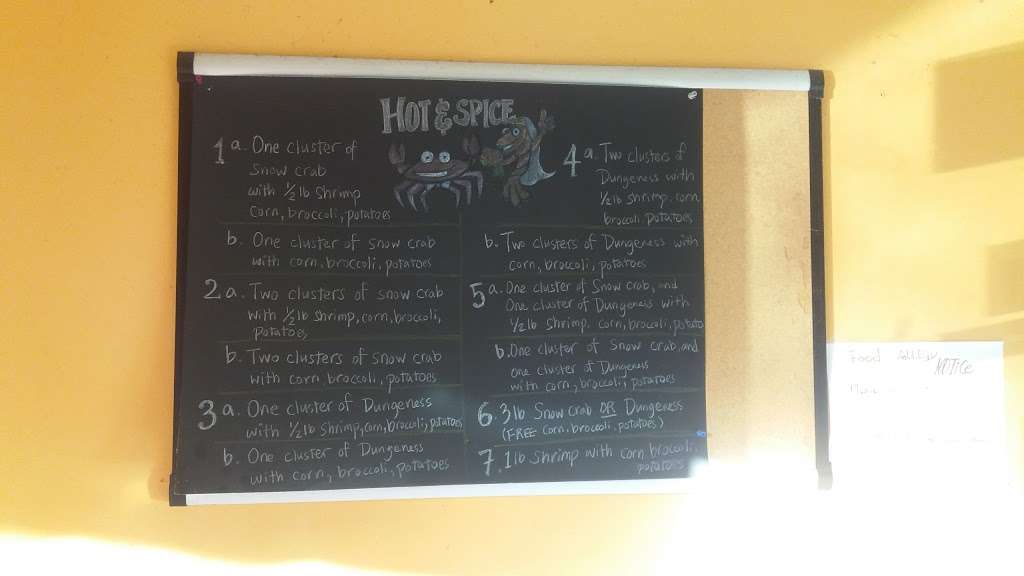 HOT & SPICE
1 a. One cluster of
Snow crab
with 1/2 lb shrimp
Corn, broccoli, potatoes
b. One cluster of snow crab
with corn, broccoli, potatoes
2 a. Two clusters of snow crab
with 1/2 lb shrimp, corn, broccoli,
potatoes
b. Two clusters of snow crab
with corn, broccoli, potatoes
3 a. One cluster of Dungeness
with 1/2 lb shrimp, corn, broccoli, potatoes
b. One cluster of Dungeness
with corn, broccoli, potatoes
4 a. Two clusters of
Dungeness with
1/2 lb shrimp, corn,
broccoli, potatoes
b. Two clusters of Dungeness with
corn, broccoli, potatoes
5 a. One cluster of Snow crab, and
One cluster of Dungeness with
1/2 lb shrimp, corn, broccoli, potato
b. One cluster of snow crab, and
one cluster of Dungeness
with corn, broccoli, potatoes
6. 3 lb Snow crab OR Dungeness
(FREE corn, broccoli, potatoes)
7. 1 lb shrimp with corn broccoli,
potatoes
Food
NOTICE